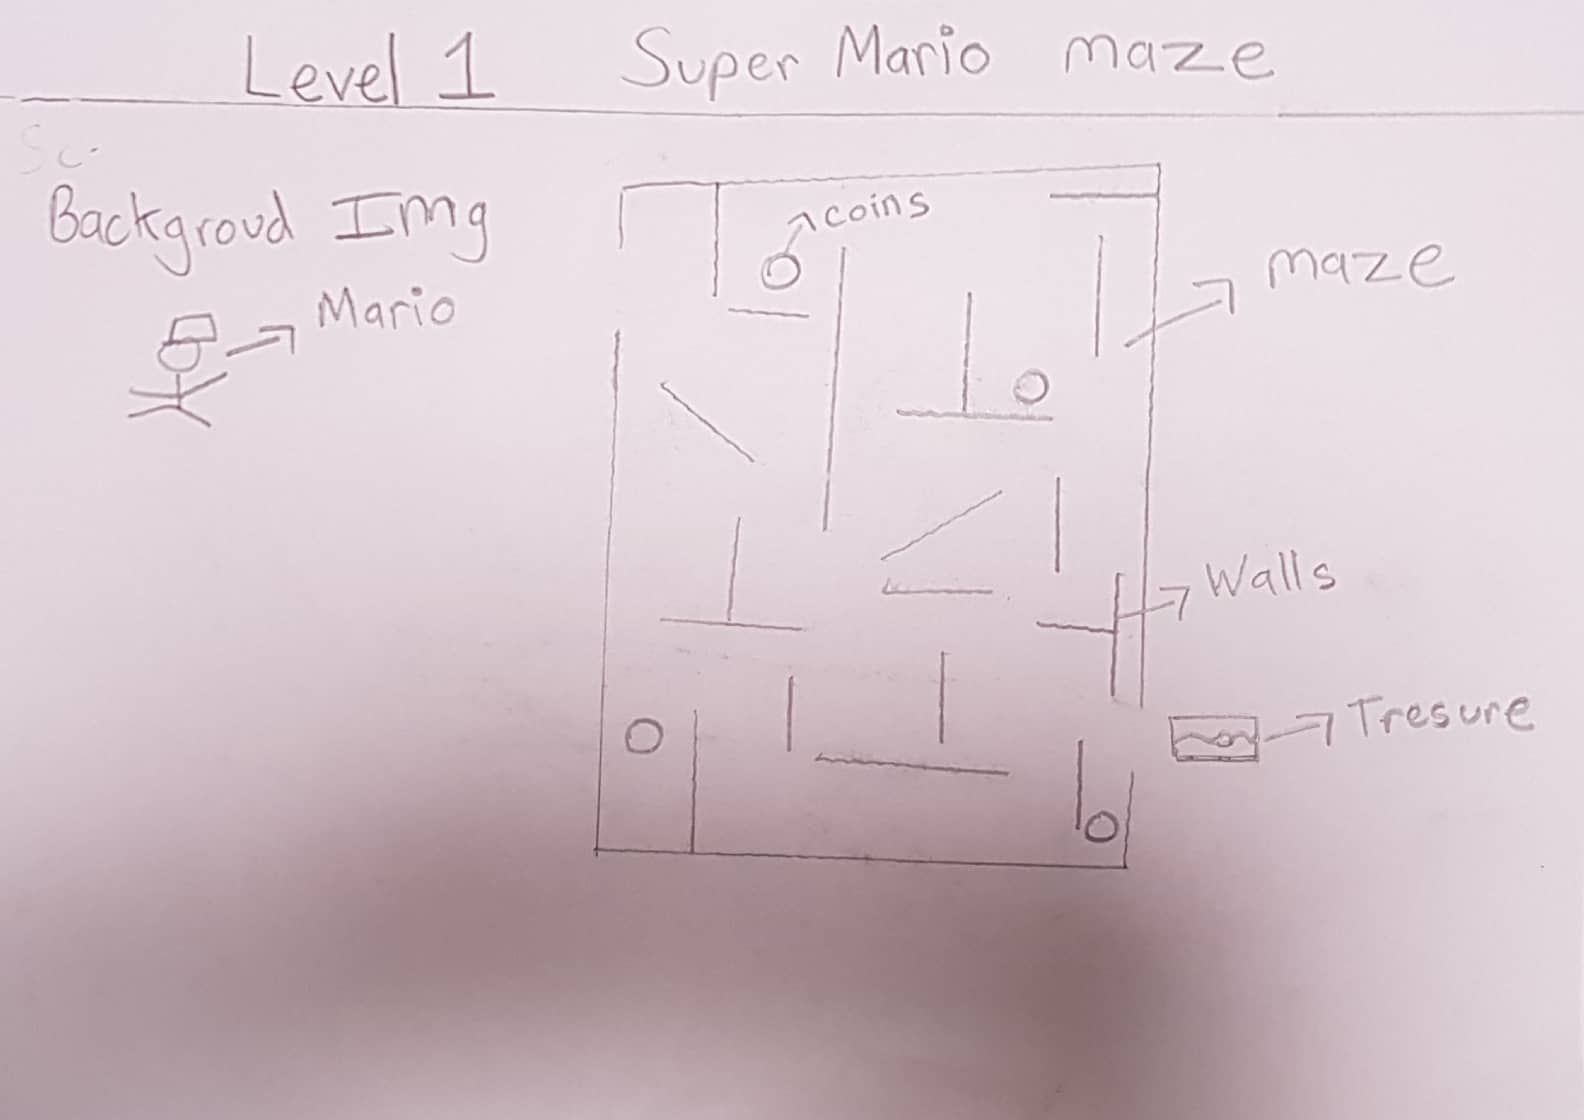 Level 1 Super Mario maze
Sc.
Backgroud Img
coins
maze
Mario
Walls
Tresure